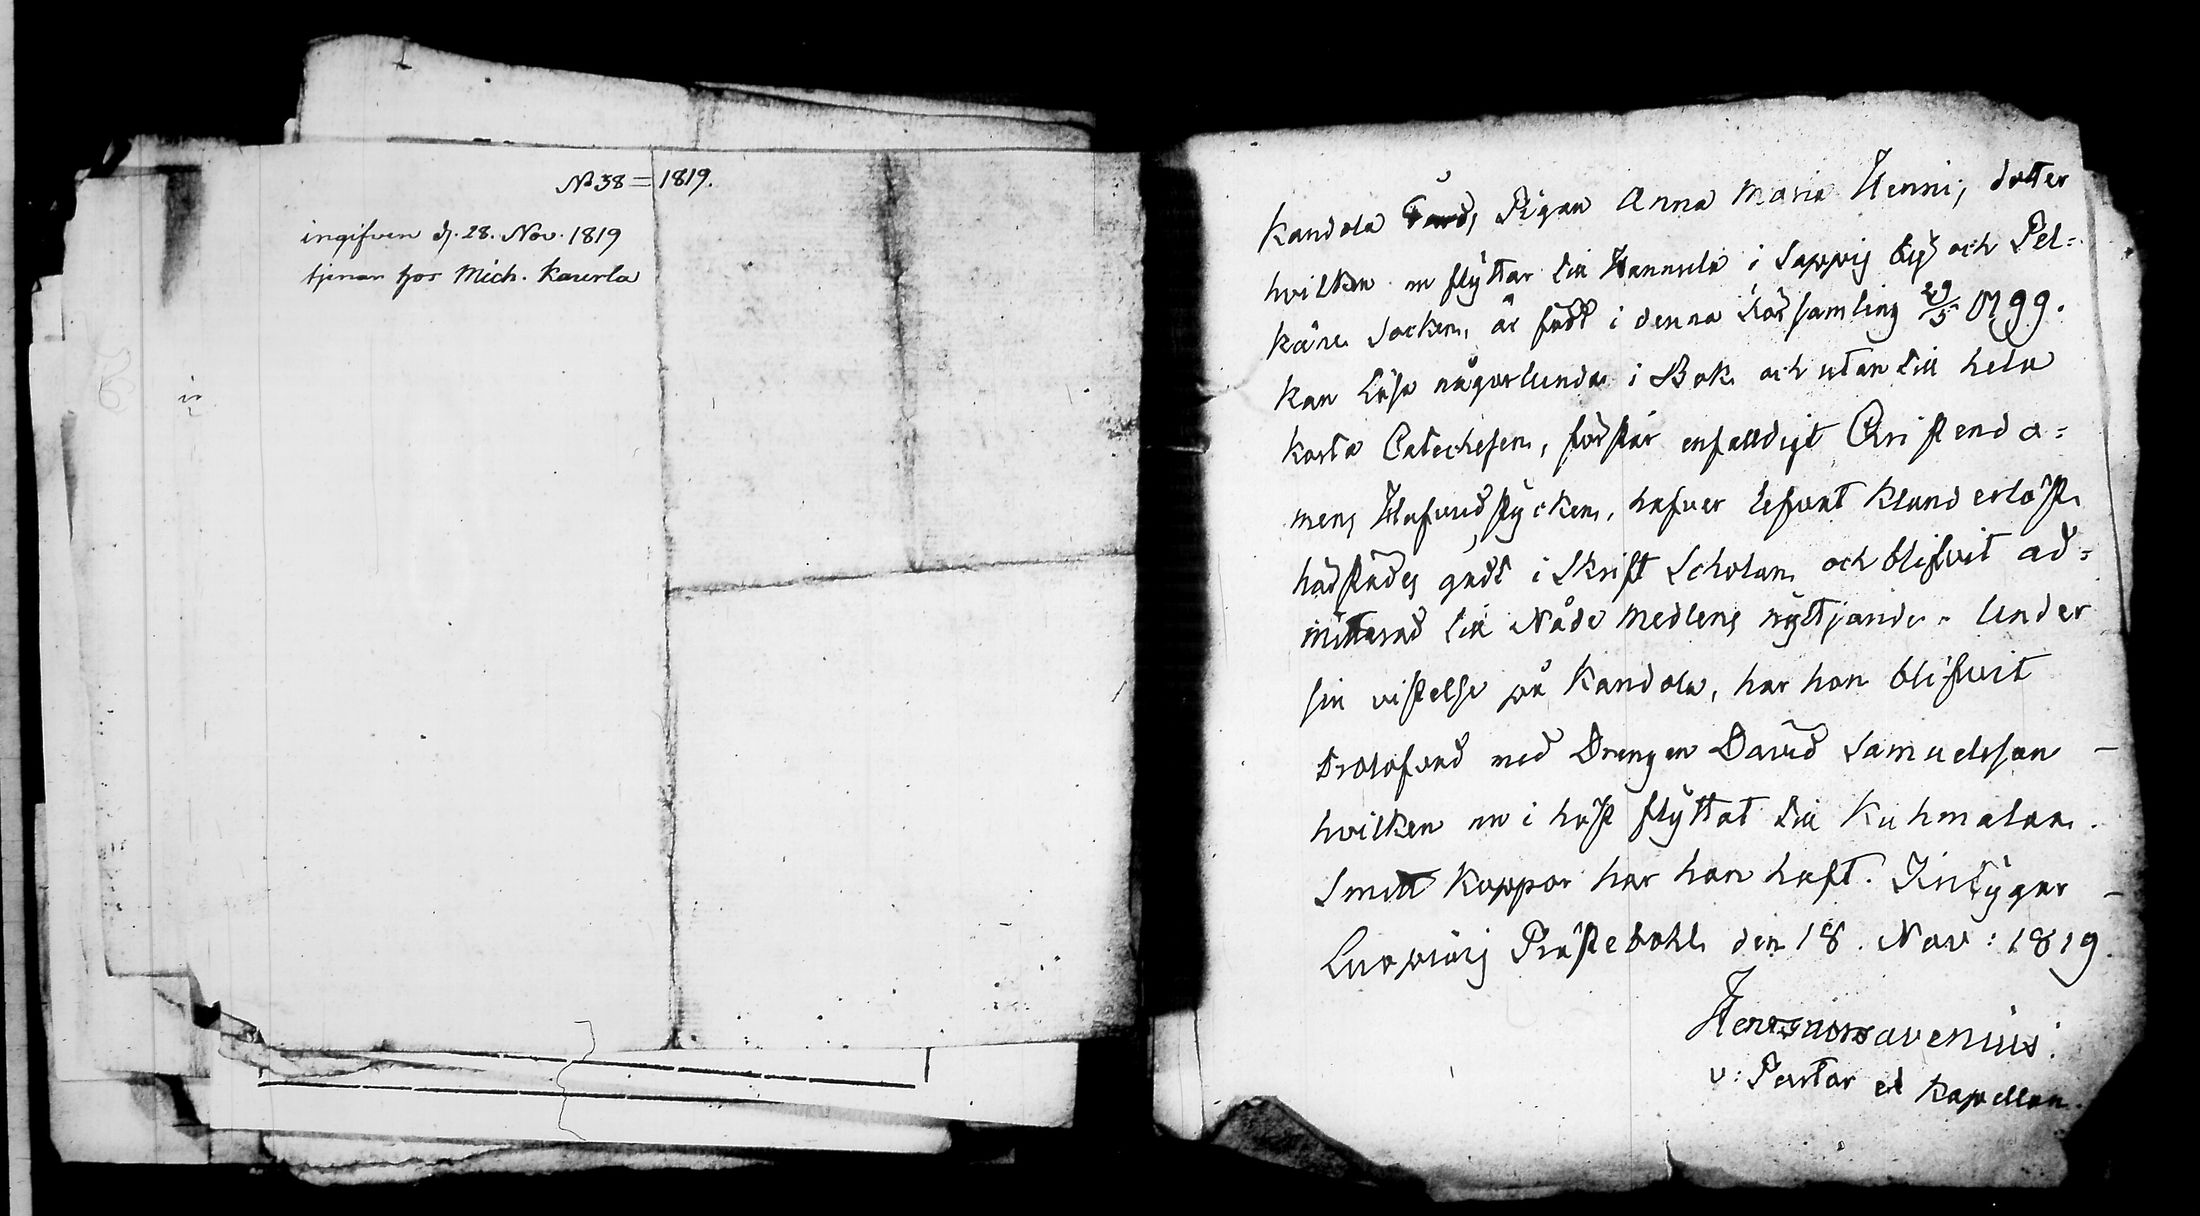 No 38 = 1819.
ingifven d. 28. Nov. 1819
tjenar hos Mich. Kaurla
Kandola Gård, Pigan Anna Maria Henrici, dotter
hvilken nu flyttar till Hannula i Sappij by och Pel=
käne Socken, är född i denna Församling 29/5 1799.
kan läsa någorlunda i Bok och utan till hela
korta Catechesen, förstår enfaldigt Christendo=
mens Hufvudstycken, hafver lefvat klanderlöst
härstädes, gådt i Skrift Scholan och blifvit ad=
mitterad till Nåde Medlens nyttjande. Under
sin vistelse på Kandola, har hon blifvit
trolofvad med Drengen David Samuelsson
hvilken nu i höst flyttat till Kuhmalax.
Smitt Koppor har hon haft. Intygar
Luopiois Prästebohl den 18. Nov: 1819.
v: Pastor et Kapellan.